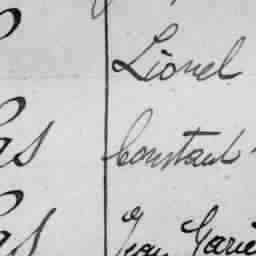 Lionel
as Constant
as Jean Marie